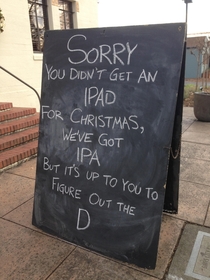 SORRY
YOU DIDN'T GET AN
IPAD
FOR CHRISTMAS,
WE'VE GOT
IPA
BUT IT'S UP TO YOU TO
FIGURE OUT THE
D